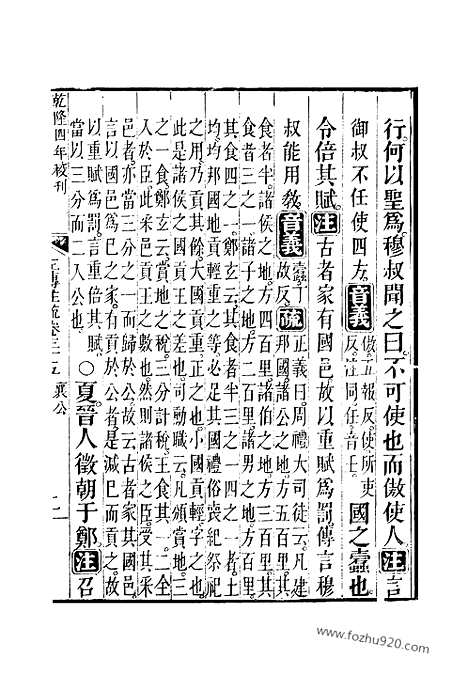 行。何以聖爲。穆叔聞之曰。不可使也而傲使人注言
御叔不任使四方。音義傲五報反。使所吏反。注同任音壬。國之蠹也。
令倍其賦。注古者家有國邑故以重賦爲罰傳言穆
叔能用敎。音義蠹丁故反。疏正義曰周禮大司徒云。凡建
邦國諸公之地。方五百里。其
食者半。諸侯之地。方四百里諸伯之地方三百里。其
食者三之一諸子之地方二百里。諸男之地方百里
其食四之一。鄭玄云。其食者半三之一四之一者。土
均均邦國地貢輕重之等。必足其國禮俗喪紀祭祀
之用。乃貢其餘。大國貢重。正之也。小國貢輕字之也
此是諸侯之國貢王之差也。司勳職云。凡頒賞地。三
之一食。鄭玄云。賞地之稅。三分計稅。王食其一。二全
入於臣。此采邑貢王之數也然則諸侯之臣。受其采
邑者。亦當三分之一而歸於公。故云古者家其國邑
言以國邑爲己之家。有貢於公者。是減己而貢之。故
以重賦爲罰。言重倍其賦。
當以三分而二入公也。○夏晉人徵朝于鄭。注召
乾隆四年校刊
左傳注疏卷三十五 襄公
www.fozhu920.com